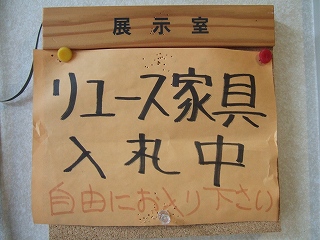 展示室
リユース家具
入札中
自由にお入り下さい